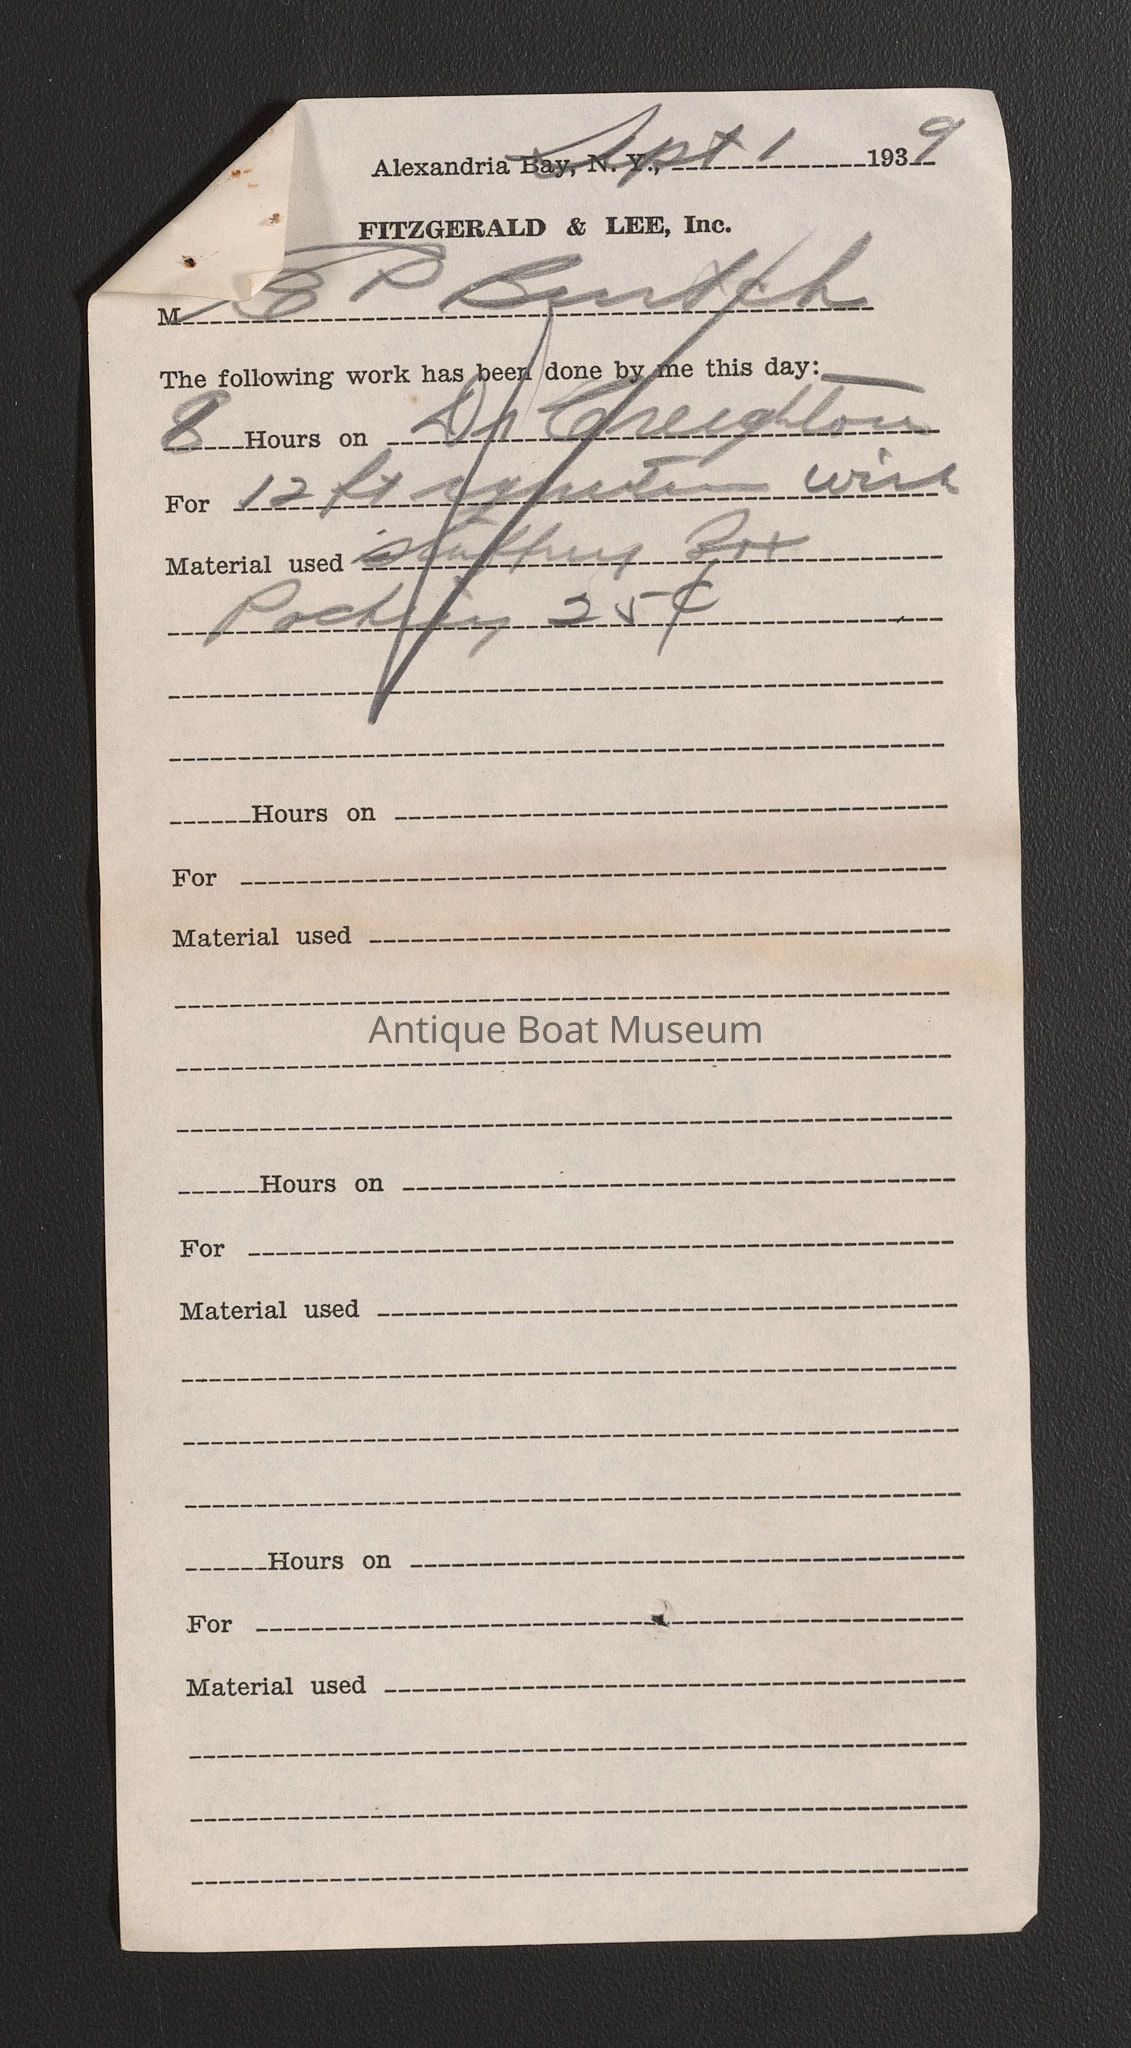 Alexandria Bay, N. Y., Sept 1 1939
FITZGERALD & LEE, Inc.
M E P Burtch
The following work has been done by me this day:
8 Hours on Dr Creighton
For 12 ft ignition wire
Material used stuffing Box
Packing 25¢
Hours on
For
Material used
Antique Boat Museum
Hours on
For
Material used
Hours on
For
Material used